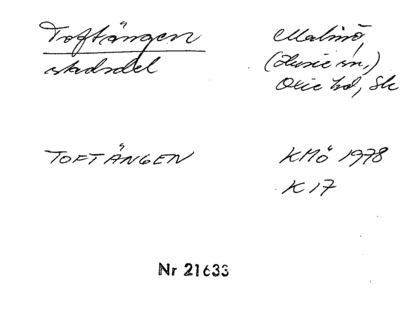 Toftängen
stadsdel
Malmö,
(Husie sn,)
Oxie hd, Sk
TOFTÄNGEN
KMÖ 1978
K17
Nr 21633